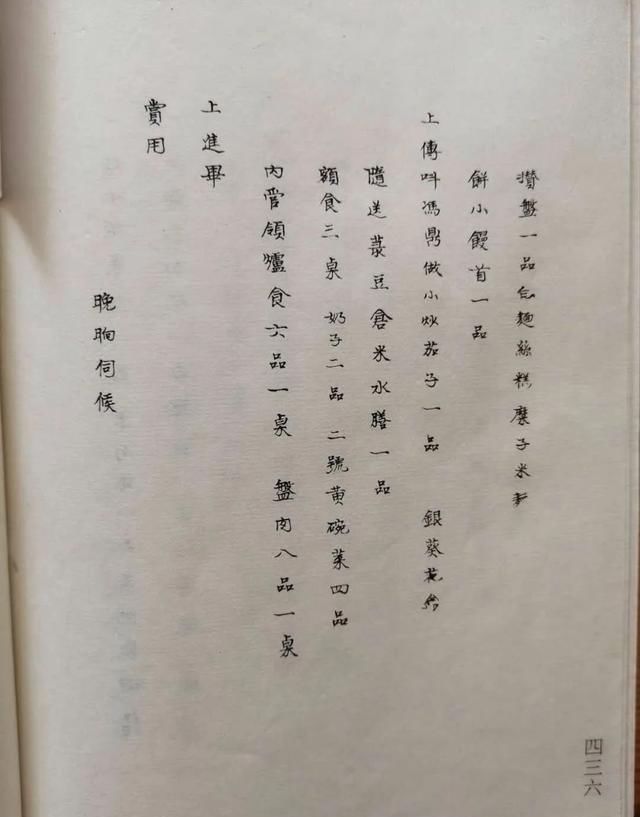 攢盤一品 白麵絲糕糜子米麵
餅小饅首一品
上傳呌馮鼎做小炒茄子一品 銀葵花盒
隨送菉豆倉米水膳一品
額食三桌 奶子二品 二號黃碗菜四品
內管領爐食六品一桌 盤肉八品一桌
上進畢
賞用
晚晌伺候
四三六